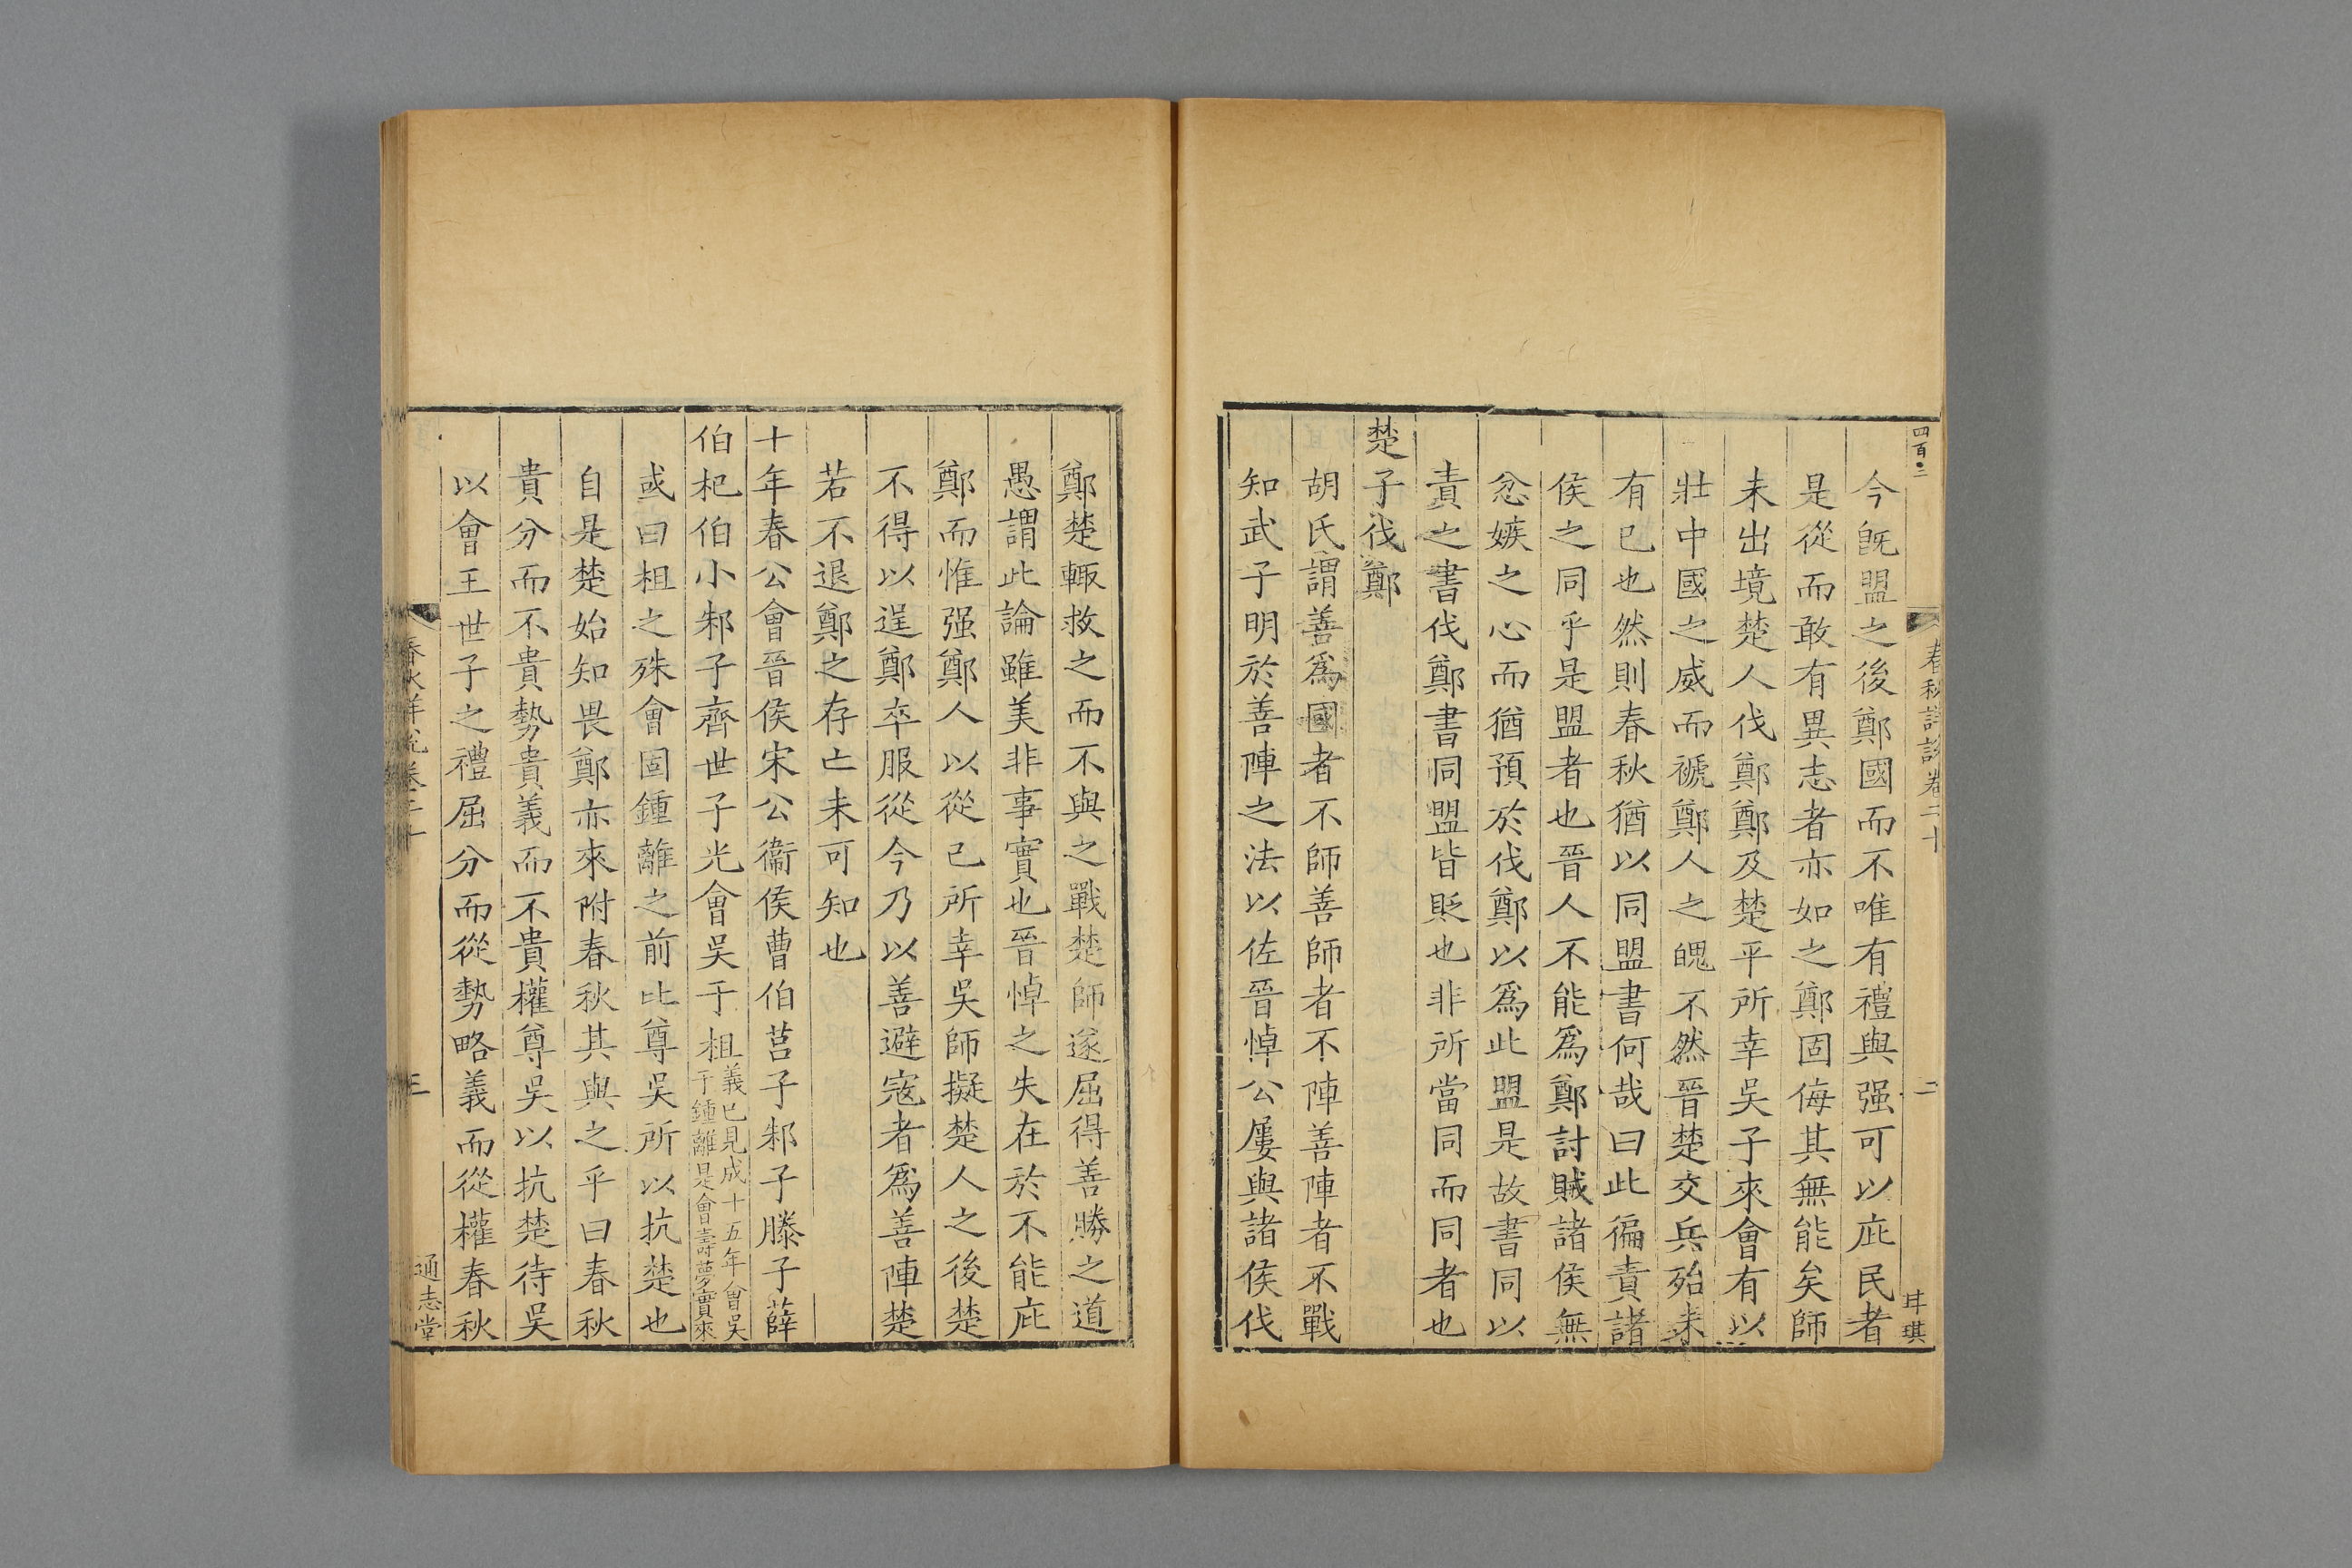 四百二
春秋詳說卷二十
二
琪
今旣盟之後鄭國而不唯有禮與强可以庇民者
是從而敢有異志者亦如之鄭固侮其無能矣師
未出境楚人伐鄭鄭及楚平所幸吳子來會有以
壯中國之威而褫鄭人之魄不然晉楚交兵殆未
有已也然則春秋猶以同盟書何哉曰此徧責諸
侯之同乎是盟者也晉人不能爲鄭討賊諸侯無
忿嫉之心而猶預於伐鄭以爲此盟是故書同以
責之書伐鄭書同盟皆貶也非所當同而同者也
楚子伐鄭
胡氏謂善爲國者不師善師者不陣善陣者不戰
知武子明於善陣之法以佐晉悼公屢與諸侯伐
鄭楚輙救之而不與之戰楚師遂屈得善勝之道
愚謂此論雖美非事實也晉悼之失在於不能庇
鄭而惟强鄭人以從己所幸吳師擬楚人之後楚
不得以逞鄭卒服從今乃以善避寇者爲善陣楚
若不退鄭之存亡未可知也
十年春公會晉侯宋公衞侯曹伯莒子邾子滕子薛
伯杞伯小邾子齊世子光會吳于柤
義已見成十五年會吳
于鍾離是會壽夢實來
或曰柤之殊會固鍾離之前比尊吳所以抗楚也
自是楚始知畏鄭亦來附春秋其與之乎曰春秋
貴分而不貴勢貴義而不貴權尊吳以抗楚待吳
以會王世子之禮屈分而從勢略義而從權春秋
春秋詳說卷二十
三
通志堂